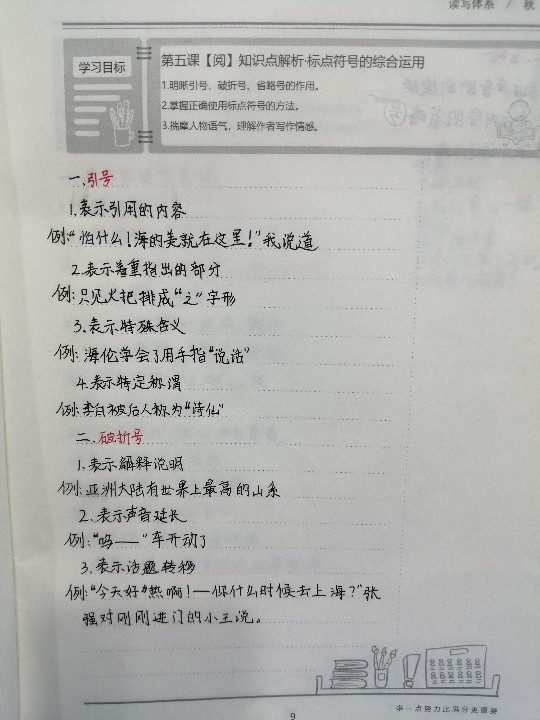 读写体系 / 秋
学习目标
第五课【阅】知识点解析·标点符号的综合运用
1.明晰引号、破折号、省略号的作用。
2.掌握正确使用标点符号的方法。
3.揣摩人物语气，理解作者写作情感。
一.引号
1.表示引用的内容
例:“怕什么!海的美就在这里!”我说道
2.表示着重指出的部分
例:只见火把排成“之”字形
3.表示特殊含义
例:海伦学会了用手指“说话”
4.表示特定称谓
例:李白被后人称为“诗仙”
二.破折号
1.表示解释说明
例:亚洲大陆有世界上最高的山系
2.表示声音延长
例:“呜——”车开动了
3.表示话题转移
例:“今天好热啊!—你什么时候去上海?”张
强对刚刚进门的小王说。
多一点努力比满分更重要
9